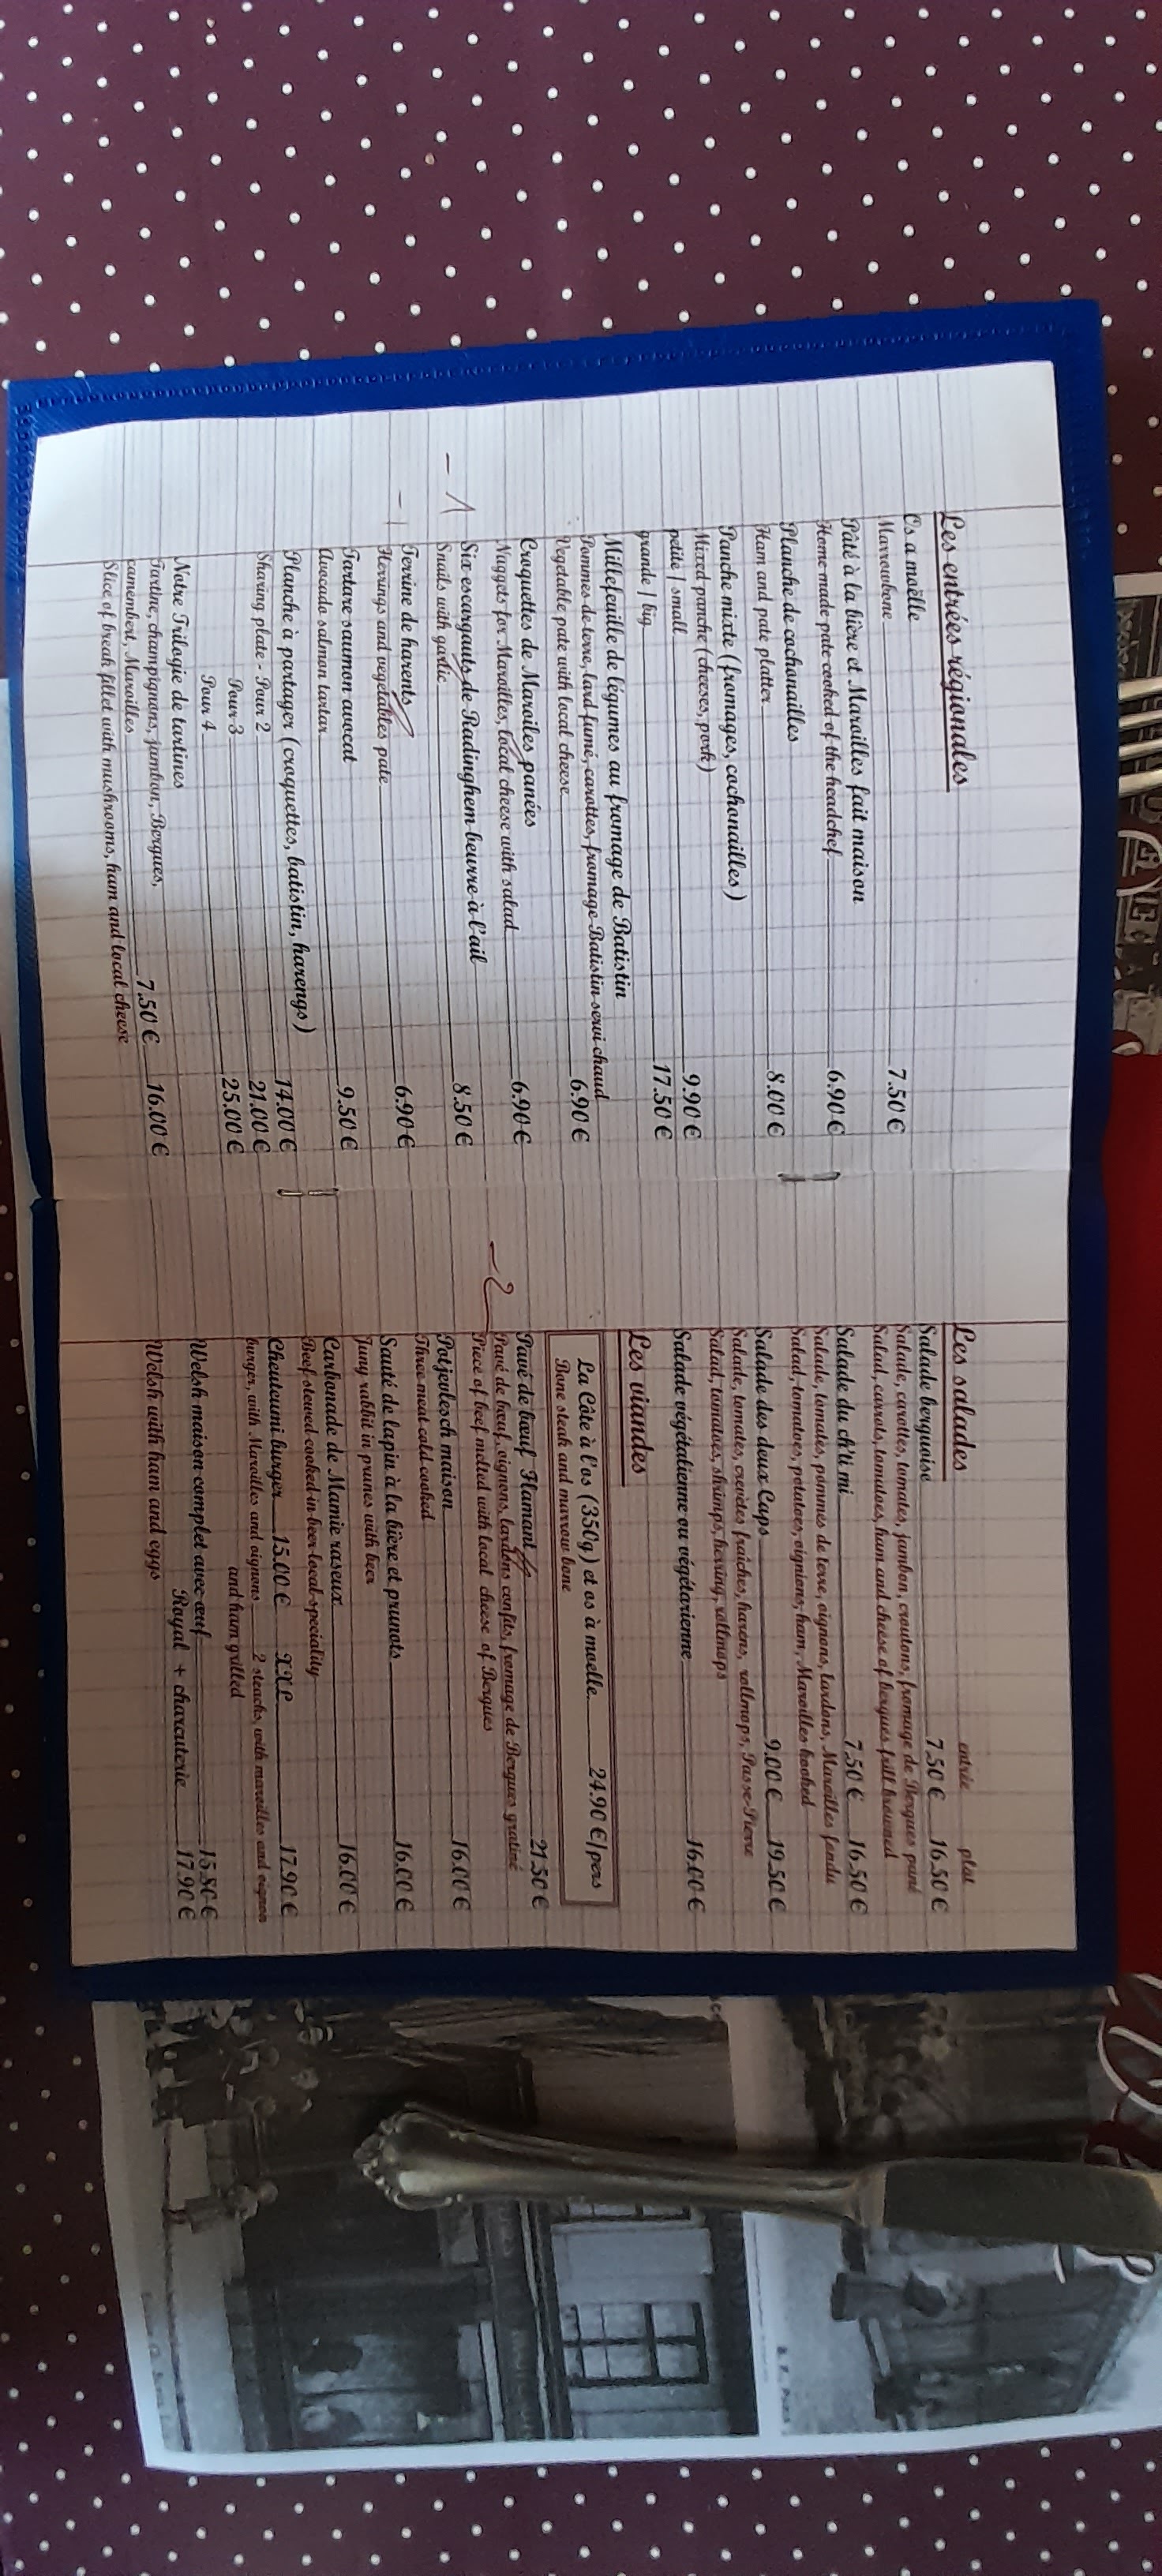 Les entrées régionales
Os a moëlle
Marrowbone 7.50 €
Pâté à la bière et Maroilles fait maison
Home made pate cooked of the headchef 6.90 €
Planche de cochonailles
Ham and pate platter 8.00 €
Panche mixte (fromages, cochonailles)
Mixed panche (cheeses, pork)
petite / small 9.90 €
grande / big 17.50 €
Millefeuille de légumes au fromage de Batistin
Pommes de terre, lard fumé, carottes, fromage Batistin servi chaud
Vegetable pate with local cheese 6.90 €
Croquettes de Maroiles panées
Nuggets for Maroilles, local cheese with salad 6.90 €
- 1 Six escargauts de Radinghem beurre à l'ail
Snails with garlic 8.50 €
- 1 Terrine de harents
Herrings and vegetables pate 6.90 €
Tartare saumon avocat
Avocado salmon tartar 9.50 €
Planche à partager (croquettes, batistin, harengs)
Sharing plate - Pour 2 14.00 €
Pour 3 21.00 €
Pour 4 25.00 €
Notre Trilogie de tartines
Tartine, champignons, jambon, Bergues,
camembert, Maroilles 7.50 € 16.00 €
Slice of break fillet with mushrooms, ham and local cheese
Les salades
entrée plat
Salade berguoise 7.50 € 16.50 €
Salade, carottes, tomates, jambon, croutons, fromage de Bergues pané
Salad, carrots, tomatoes, ham and cheese of bergues frill browned
Salade du ch'ti mi 7.50 € 16.50 €
Salade, tomates, pommes de terre, oignons, lardons, Maroilles fondu
Salad, tomatoes, potatoes, oignions, ham, Maroilles hooked
Salade des deux Caps 9.00 € 19.50 €
Salade, tomates, crevettes fraiches, harens, rollmops, Passe-Pierre
Salad, tomatoes, shrimps, herring, rollmops
Salade végétalienne ou végétarienne 16.00 €
Les viandes
La Côte à l'os (350g) et os à moelle 24.90 €/pers
Bone steak and marrow bone
Pavé de bœuf Flamant 21.50 €
- 2 Pavé de bœuf, oignons, lardons confits, fromage de Bergues gratiné
Piece of beef melted with local cheese of Bergues
Potjevlesch maison 16.00 €
Three meat cold cooked
Sauté de lapin à la bière et prunots 16.00 €
Juny rabbit in prunes with beer
Carbonade de Mamie raseux 16.00 €
Beef stewed cooked in beer local speciality
Cheutoumi burger 15.00 € XXL 17.90 €
burger, with Maroilles and oignons 2 steacks, with maroilles and oignon
and ham grilled
Welsh maison complet avec œuf 15.80 €
Royal + charcuterie 17.90 €
Welsh with ham and eggs